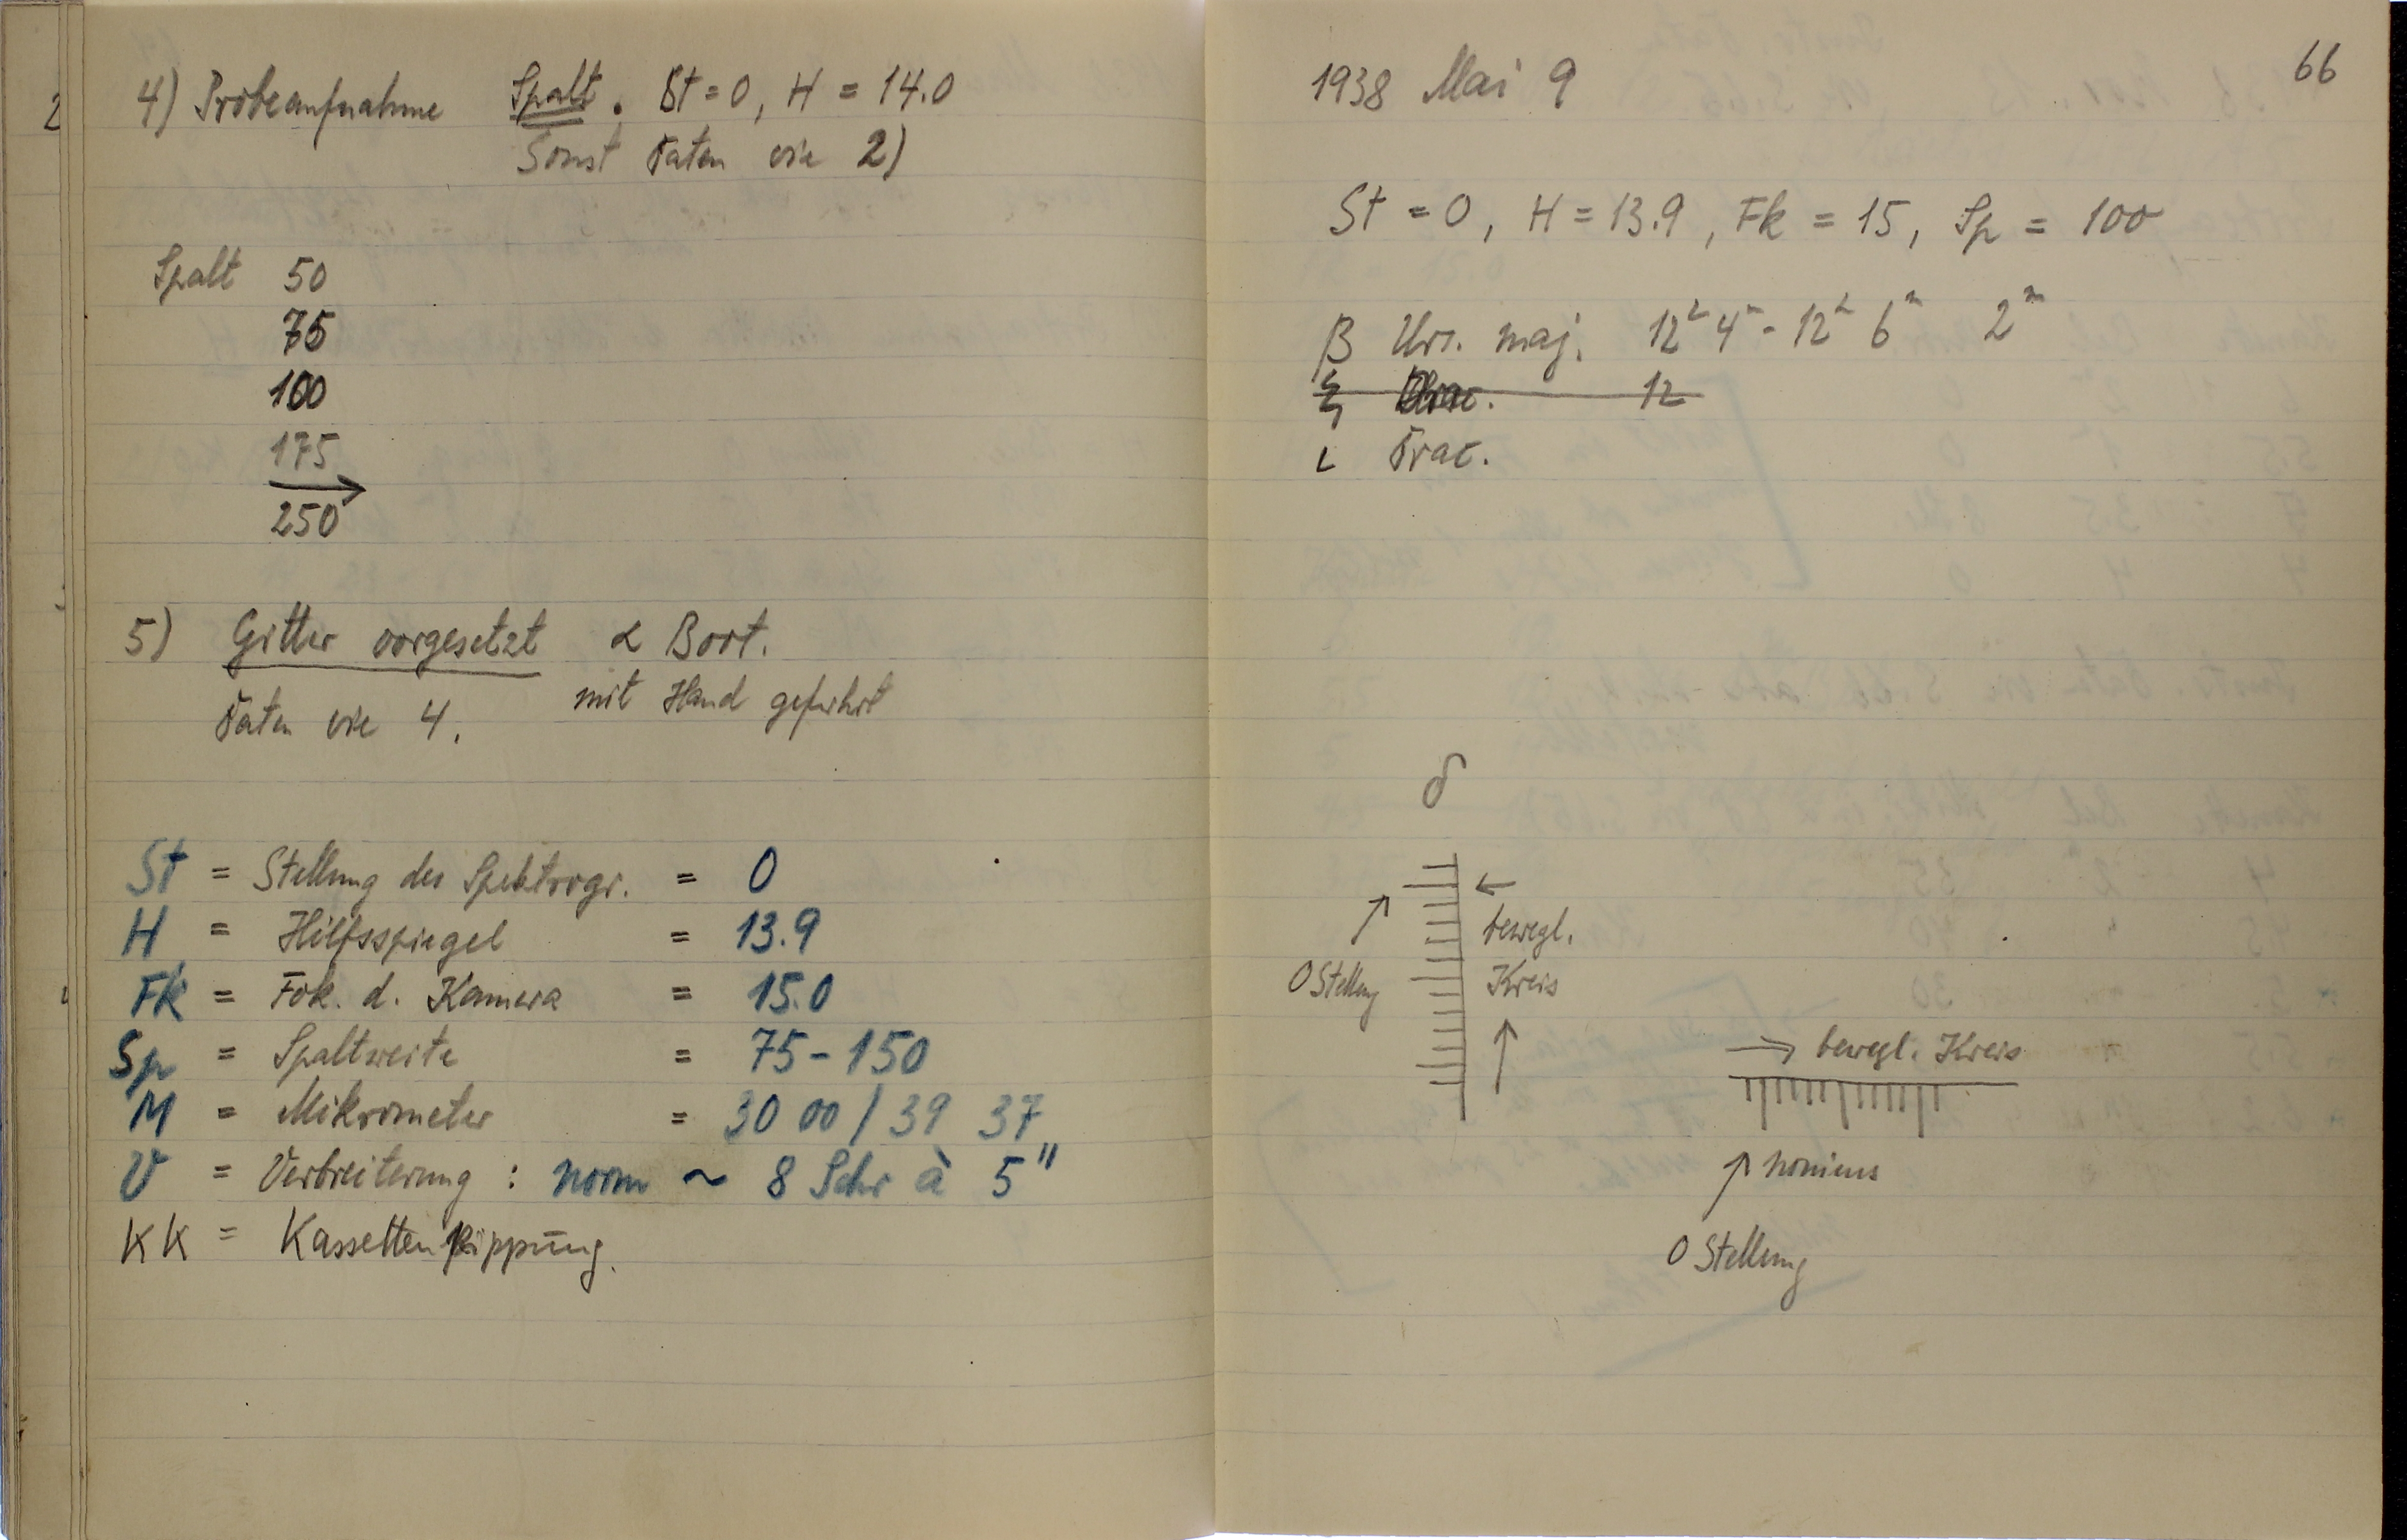 4) Probeaufnahme Spalt. St = 0, H = 14.0
Sonst Daten wie 2)
Spalt 50
75
100
175
250
5) Gitter vorgesetzt α Boot.
mit Hand geführt
Daten wie 4.
St = Stellung des Spektrogr. = 0
H = Hilfsspiegel = 13.9
Fk = Fok. d. Kamera = 15.0
Sp = Spaltweite = 75-150
M = Mikrometer = 30 00 / 39 37
V = Verbreiterung : norm ~ 8 Schr à 5"
KK = Kassettenkippung.
66
1938 Mai 9
St = 0, H = 13.9, Fk = 15, Sp = 100
β Urs. maj. 12ʰ 4ᵐ - 12ʰ 6ᵐ 2ᵐ
ξ 12
ι Drac.
δ
←
bewegl.
Kreis
0 Stellung
→ bewegl. Kreis
nonius
0 Stellung